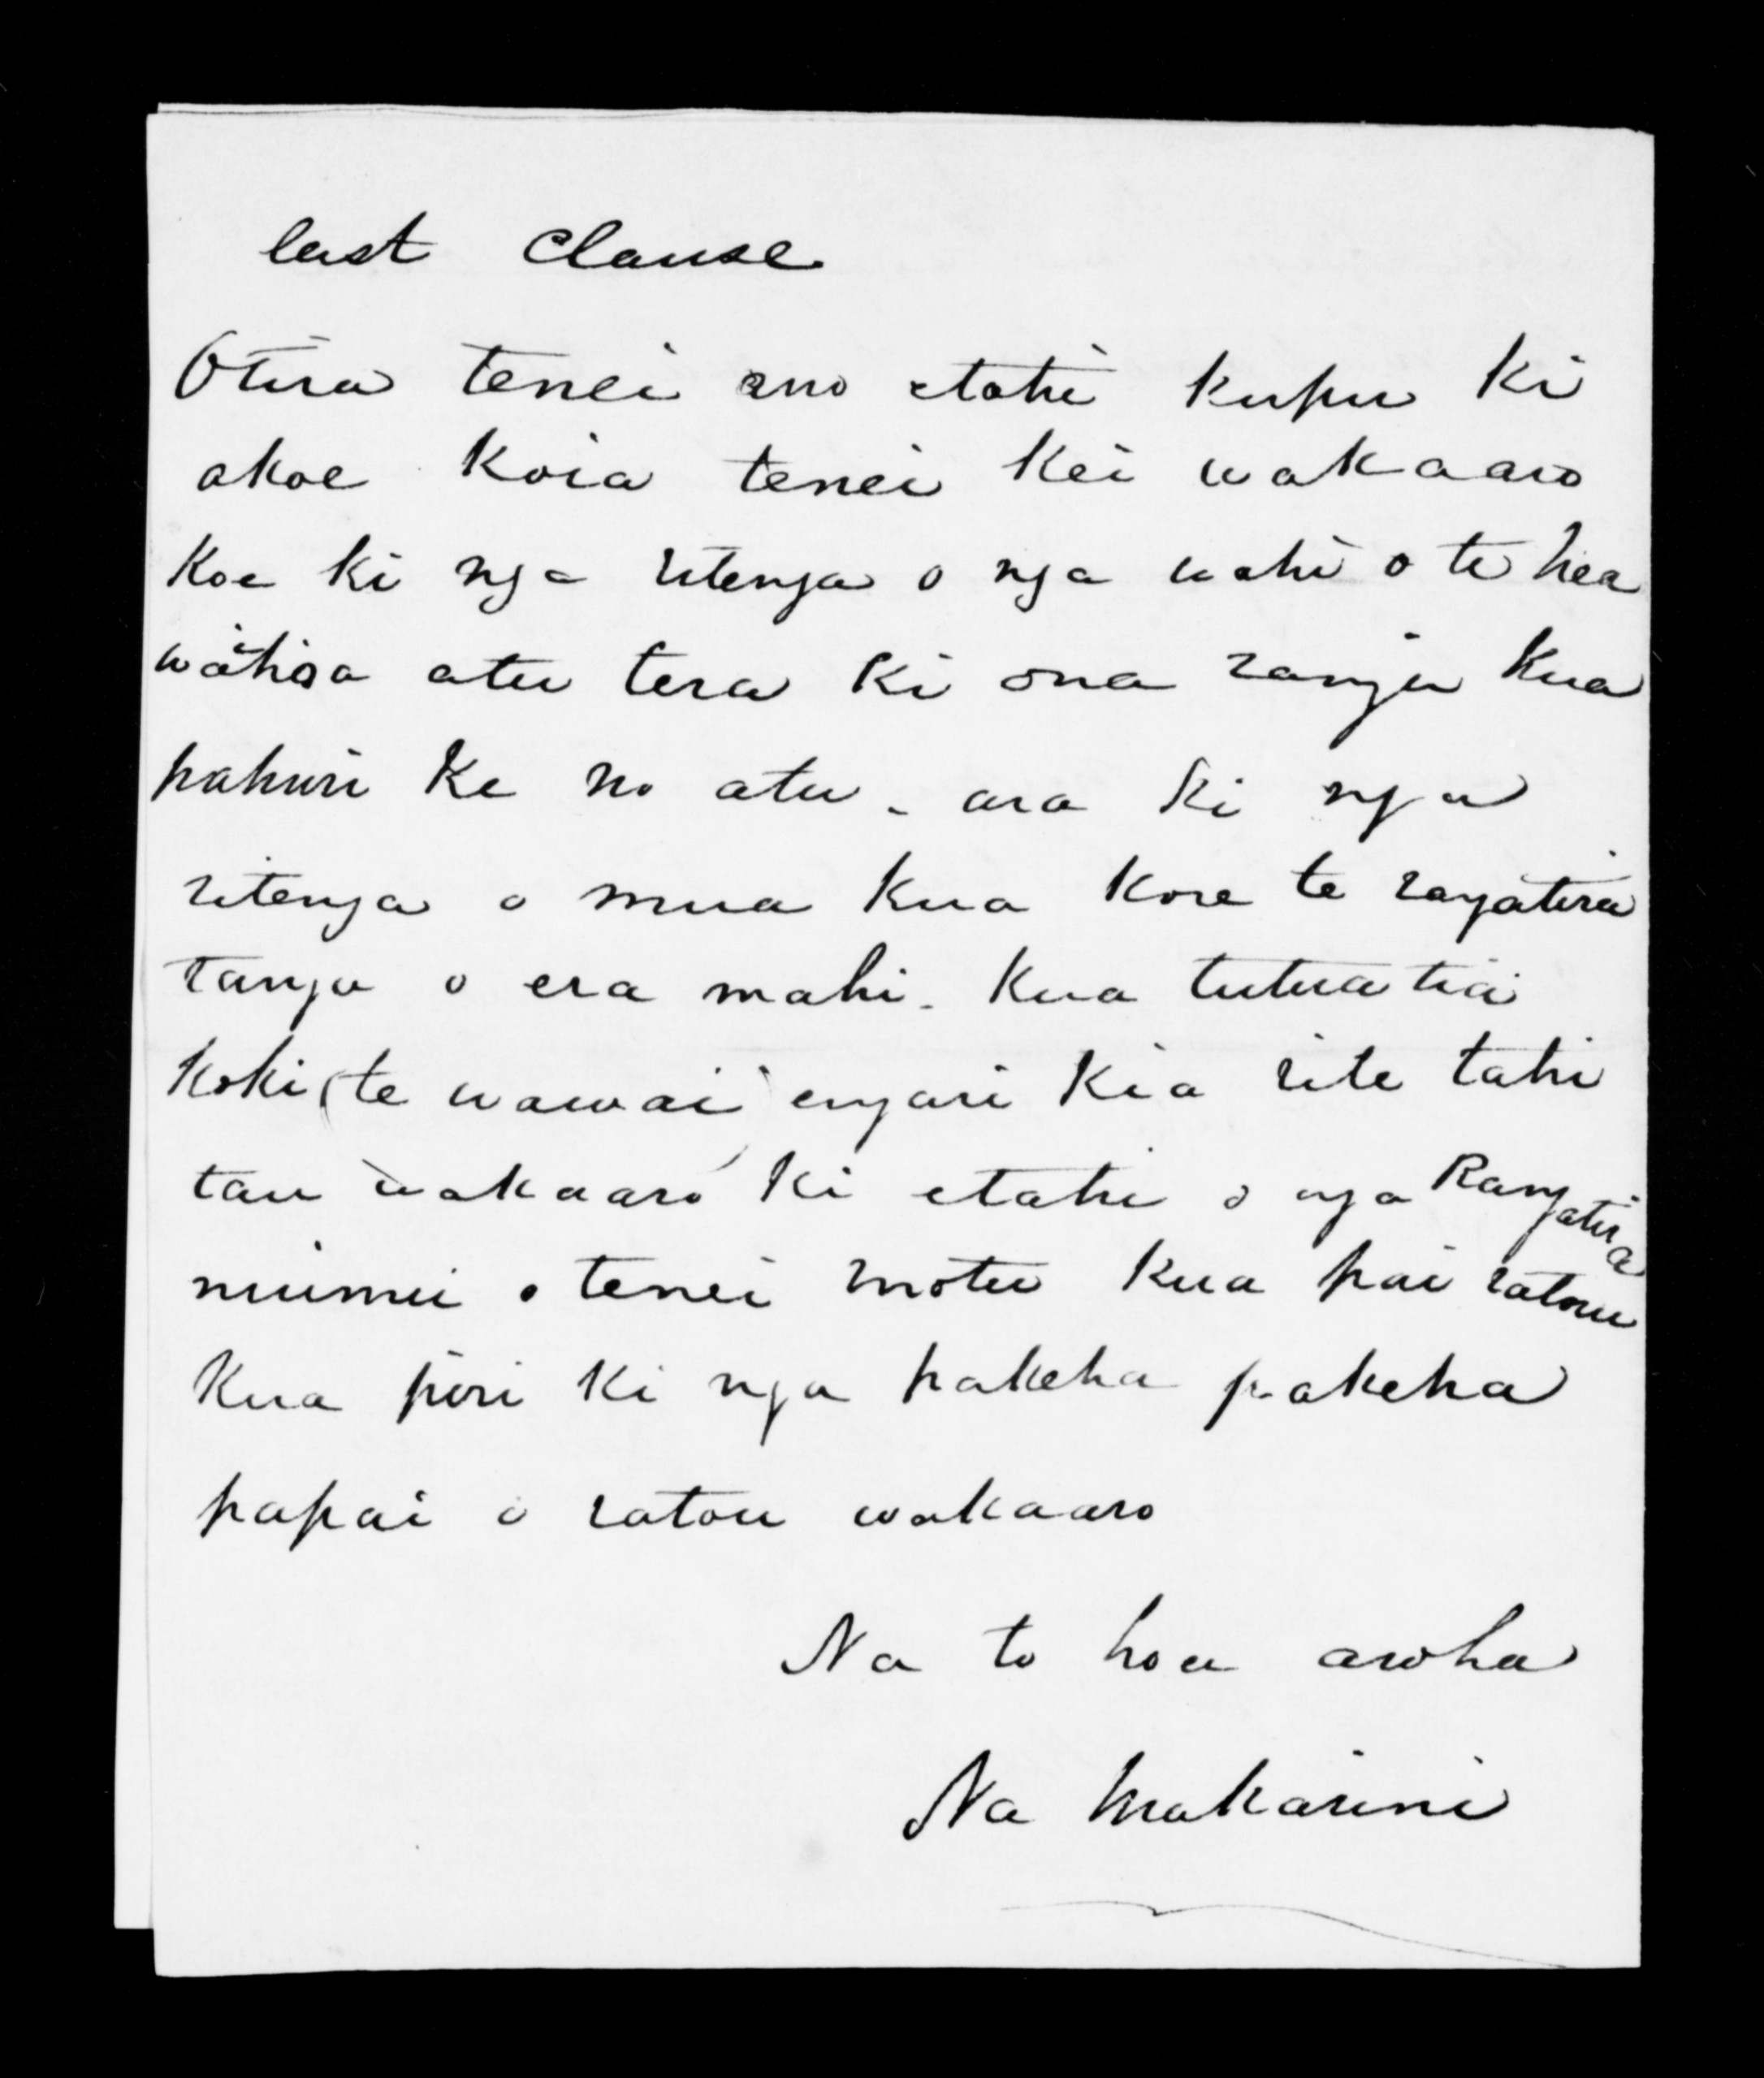 last Clause
Otira tenei ano etahi kupu ki
akoe koia tenei kei wakaaro
koe ki nga ritenga o nga wahi o te hea
atu tera ki ona ranga kua
pahuri ke no atu - ara ki nga
ritenga o mua kua kore te rangatira
tanga o era mahi - kua tutua tia
koki (te wawai engari kia rite tahi
tau wakaaro ki etahi o nga Rangatira
nuinui o tenei motu kua pai ratou
kua piri ki nga pakeha pakeha
papai o ratou wakaaro
Na to hoa aroha
Na Makarini